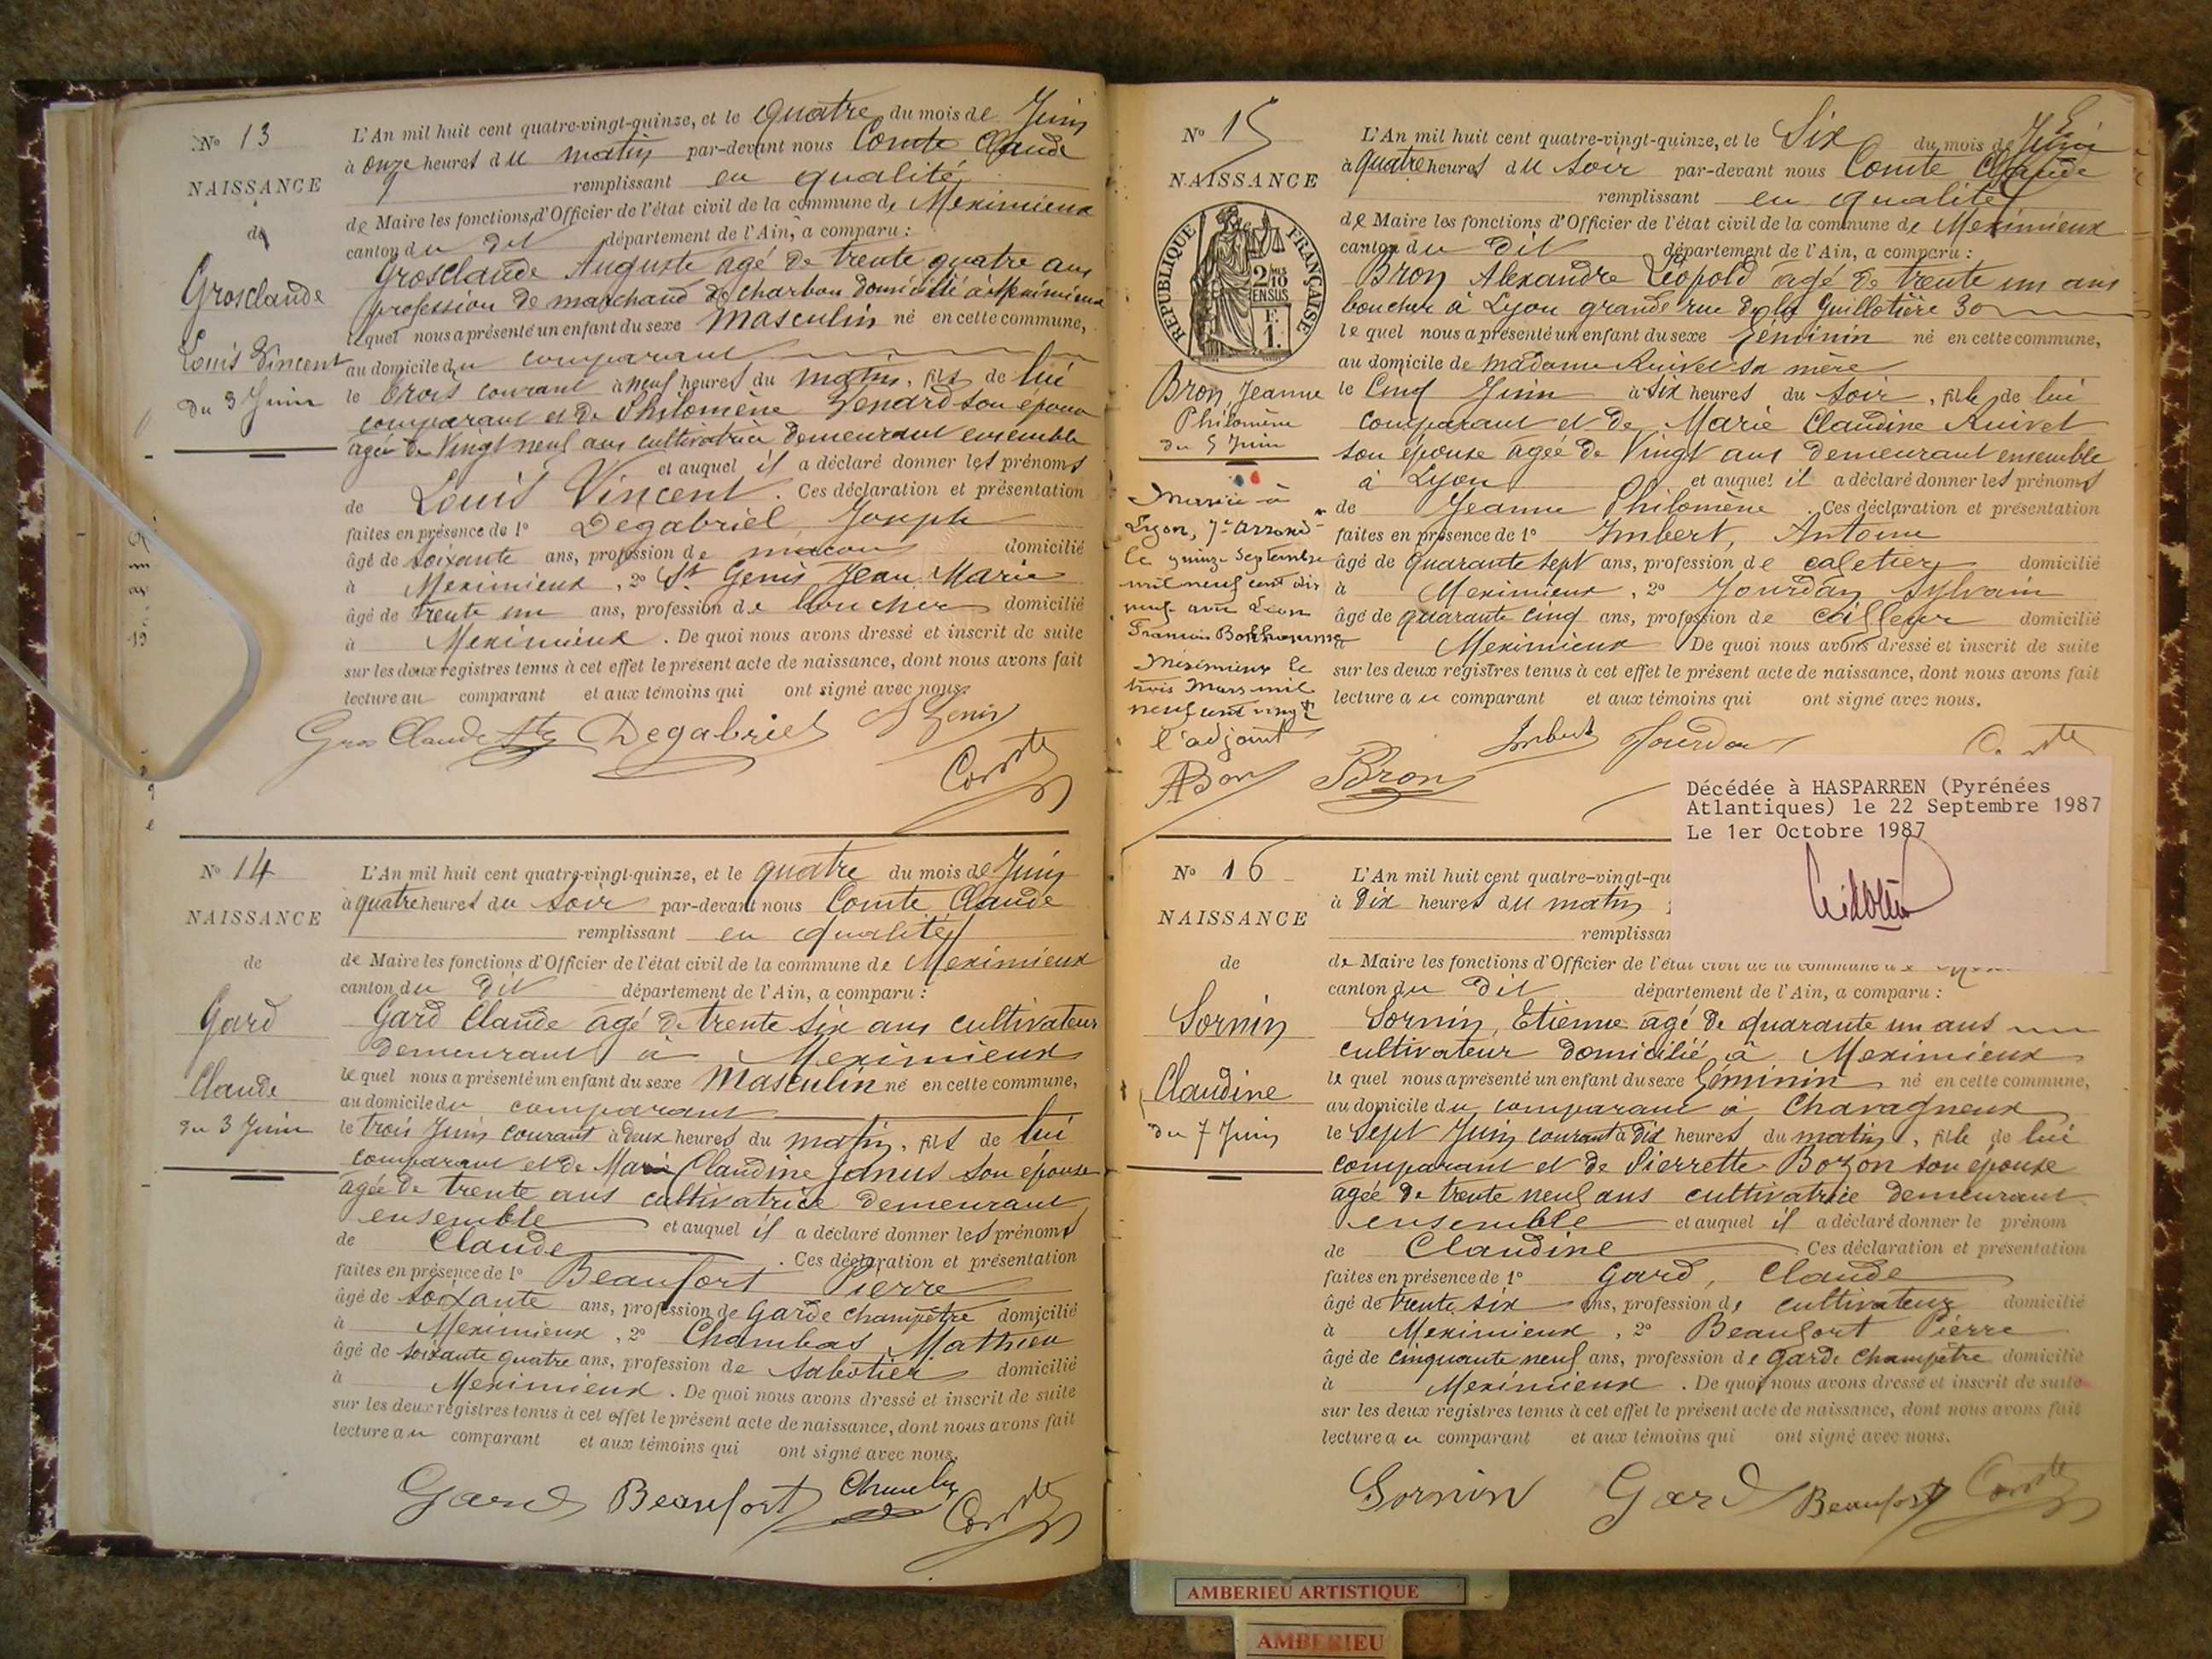 N° 13
NAISSANCE
de
Grosclaude
Louis Vincent
du 3 Juin
L'An mil huit cent quatre-vingt-quinze, et le quatre du mois de Juin
à onze heures du matin par-devant nous Comte Claude
remplissant en qualité
de Maire les fonctions d'Officier de l'état civil de la commune de Meximieux
canton du dit département de l'Ain, a comparu :
Grosclaude Auguste agé de trente quatre ans
profession de marchand de charbon domicilié à Meximieux
lequel nous a présenté un enfant du sexe Masculin né en cette commune,
au domicile du comparant
le trois courant à neuf heures du matin, fils de lui
comparant et de Philomène Genard son épouse
agée de Vingt neuf ans cultivatrice demeurant ensemble
et auquel il a déclaré donner les prénoms
de Louis Vincent. Ces déclaration et présentation
faites en présence de 1° Degabriel Joseph
âgé de soixante ans, profession de maçon domicilié
à Meximieux, 2° St Genis Jean Marie
âgé de trente un ans, profession de boucher domicilié
à Meximieux. De quoi nous avons dressé et inscrit de suite
sur les deux registres tenus à cet effet le présent acte de naissance, dont nous avons fait
lecture au comparant et aux témoins qui ont signé avec nous.
Gros Claude Ate Degabriel St Genis
Comte
N° 14
NAISSANCE
de
Gard
Claude
du 3 Juin
L'An mil huit cent quatre-vingt-quinze, et le quatre du mois de Juin
à quatre heures du soir par-devant nous Comte Claude
remplissant en qualité
de Maire les fonctions d'Officier de l'état civil de la commune de Meximieux
canton du dit département de l'Ain, a comparu :
Gard Claude agé de trente six ans cultivateur
demeurant à Meximieux
lequel nous a présenté un enfant du sexe Masculin né en cette commune,
au domicile du comparant
le trois Juin courant à deux heures du matin, fils de lui
comparant et de Marie Claudine Janus son épouse
agée de trente ans cultivatrice demeurant
ensemble et auquel il a déclaré donner les prénoms
de Claude. Ces déclaration et présentation
faites en présence de 1° Beaufort Pierre
âgé de soixante ans, profession de Garde champêtre domicilié
à Meximieux, 2° Chambas Mathieu
âgé de soixante quatre ans, profession de sabotier domicilié
à Meximieux. De quoi nous avons dressé et inscrit de suite
sur les deux registres tenus à cet effet le présent acte de naissance, dont nous avons fait
lecture au comparant et aux témoins qui ont signé avec nous.
Gard Beaufort Chambas Comte
N° 15
NAISSANCE
RÉPUBLIQUE FRANÇAISE
2/10 EN SUS
F. 1.
Bron Jeanne
Philomène
du 5 Juin
Mariée à
Lyon, 7e arrond
le quinze Septembre
mil neuf cent dix
neuf avec Léon
Meximieux le
trois Mars mil
neuf cent vingt
l'adjoint
L'An mil huit cent quatre-vingt-quinze, et le Six du mois de Juin
à quatre heures du soir par-devant nous Comte Claude
remplissant en qualité
de Maire les fonctions d'Officier de l'état civil de la commune de Meximieux
canton du dit département de l'Ain, a comparu :
Bron Alexandre Léopold agé de trente un ans
boucher à Lyon grande rue de la Guillotière 30
lequel nous a présenté un enfant du sexe féminin né en cette commune,
au domicile de madame Ruivet sa mère
le Cinq Juin à six heures du soir, fille de lui
comparant et de Marie Claudine Ruivet
son épouse agée de Vingt ans demeurant ensemble
à Lyon et auquel il a déclaré donner les prénoms
de Jeanne Philomène. Ces déclaration et présentation
faites en présence de 1° Imbert, Antoine
âgé de Quarante sept ans, profession de cafetier domicilié
à Meximieux, 2° Jourdan Sylvain
âgé de quarante cinq ans, profession de tailleur domicilié
à Meximieux De quoi nous avons dressé et inscrit de suite
sur les deux registres tenus à cet effet le présent acte de naissance, dont nous avons fait
lecture au comparant et aux témoins qui ont signé avec nous.
Imbert Jourdan Comte
Bron
Décédée à HASPARREN (Pyrénées
Atlantiques) le 22 Septembre 1987
Le 1er Octobre 1987
N° 16
NAISSANCE
de
Sornin
Claudine
du 7 Juin
L'An mil huit cent quatre-vingt-qu
à Dix heures du matin
remplissan
de Maire les fonctions d'Officier de l'état civil de la commune de
canton du dit département de l'Ain, a comparu :
Sornin, Etienne agé de quarante un ans
cultivateur domicilié à Meximieux
lequel nous a présenté un enfant du sexe féminin né en cette commune,
au domicile du comparant à Chavagneux
le Sept Juin courant à dix heures du matin, fille de lui
comparant et de Pierrette Bozon son épouse
agée de trente neuf ans cultivatrice demeurant
ensemble et auquel il a déclaré donner le prénom
de Claudine Ces déclaration et présentation
faites en présence de 1° Gard, Claude
âgé de trente six ans, profession de cultivateur domicilié
à Meximieux, 2° Beaufort Pierre
âgé de cinquante neuf ans, profession de garde champêtre domicilié
à Meximieux. De quoi nous avons dressé et inscrit de suite
sur les deux registres tenus à cet effet le présent acte de naissance, dont nous avons fait
lecture au comparant et aux témoins qui ont signé avec nous.
Sornin Gard Beaufort Comte
AMBERIEU ARTISTIQUE
AMBERIEU